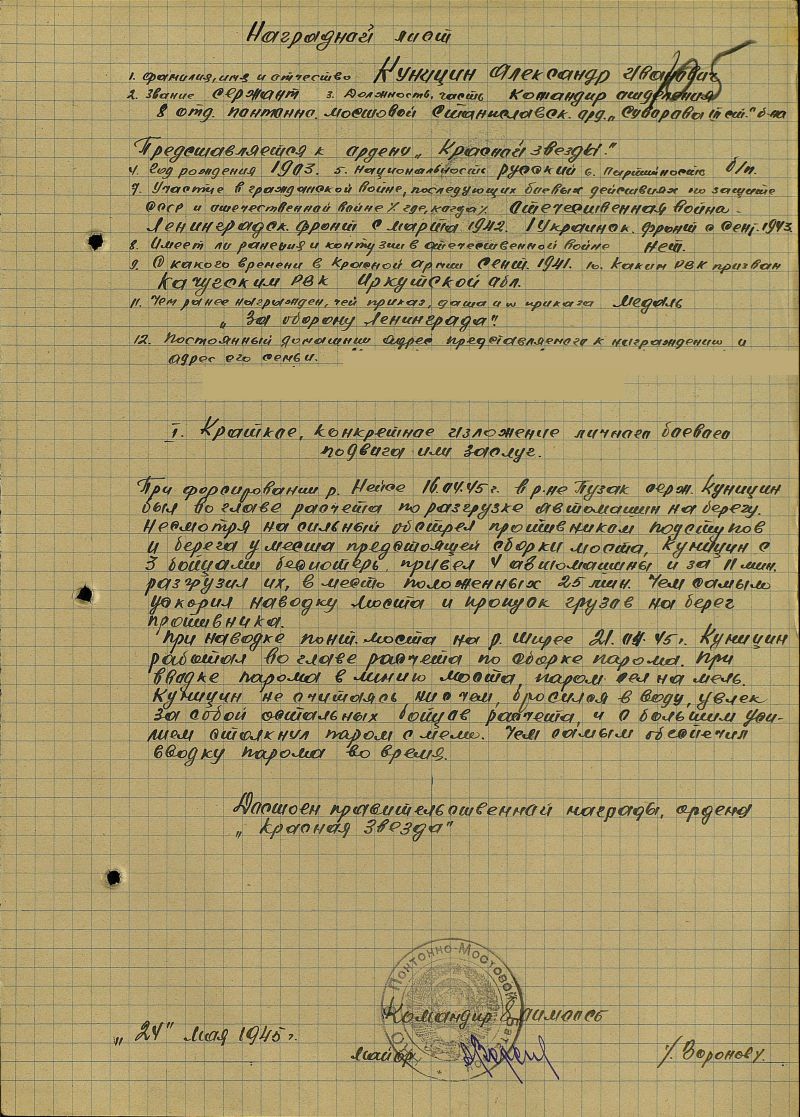 Наградной лист
105
1. Фамилия, имя и отчество Куницин Александр Иванович
2. Звание сержант 3. Должность, часть Командир отделения
8 отд. понтонно. мостовой Станиславск. орд. „Суворова III ст." б-на
Представляется к ордену „Красной звезды."
4. Год рождения 1903. 5. Национальность русский 6. Партийность б/п.
7. Участие в гражданской войне, последующих боевых действиях по защите
СССР и отечественной войне /где, когда/ Отечественная война –
Ленинградск. фронт с марта 1942. 1 Украинск. фронт с сент. 1943.
8. Имеет ли ранения и контузии в отечественной войне нет.
9. С какого времени в Красной армии сент. 1941. 10. Каким РВК призван
Качугским РВК Иркутской обл.
11. Чем ранее награжден, чей приказ, дата и № приказа Медаль
„За оборону Ленинграда".
12. Постоянный домашний адрес представляемого к награждению и
адрес его семьи.
I. Краткое, конкретное изложение личного боевого
подвига или заслуг.
При форсировании р. Нейсе 16.04.45 г. в р-не Пузак серж. Куницин
был во главе расчета по разгрузке автомашин на берегу.
Несмотря на сильный обстрел противником подступов
и берега у места предстоящей сборки моста, Куницин с
3 бойцами без потерь привел 4 автомашины и за 11 мин.
разгрузил их, вместо положенных 25 мин. Чем самым
ускорил наводку моста и пропуск грузов на берег
противника.
При наводке понт. моста на р. Шпрее 21.04.45 г. Куницин
работал во главе расчета по сборке парома. При
вводке парома в линию моста, паром сел на мель.
Куницин не считаясь ни с чем, бросился в воду, увлек
за собой остальных бойцов расчета, и с большим уси-
лием столкнул паром с мели. Чем самым обеспечил
вводку парома во время.
Достоин правительственной награды, ордена
„Красная Звезда"
Понтонно-Мостовой
Командир 8 оимопсб
„24" мая 1945 г.
майор /. Воронов /.